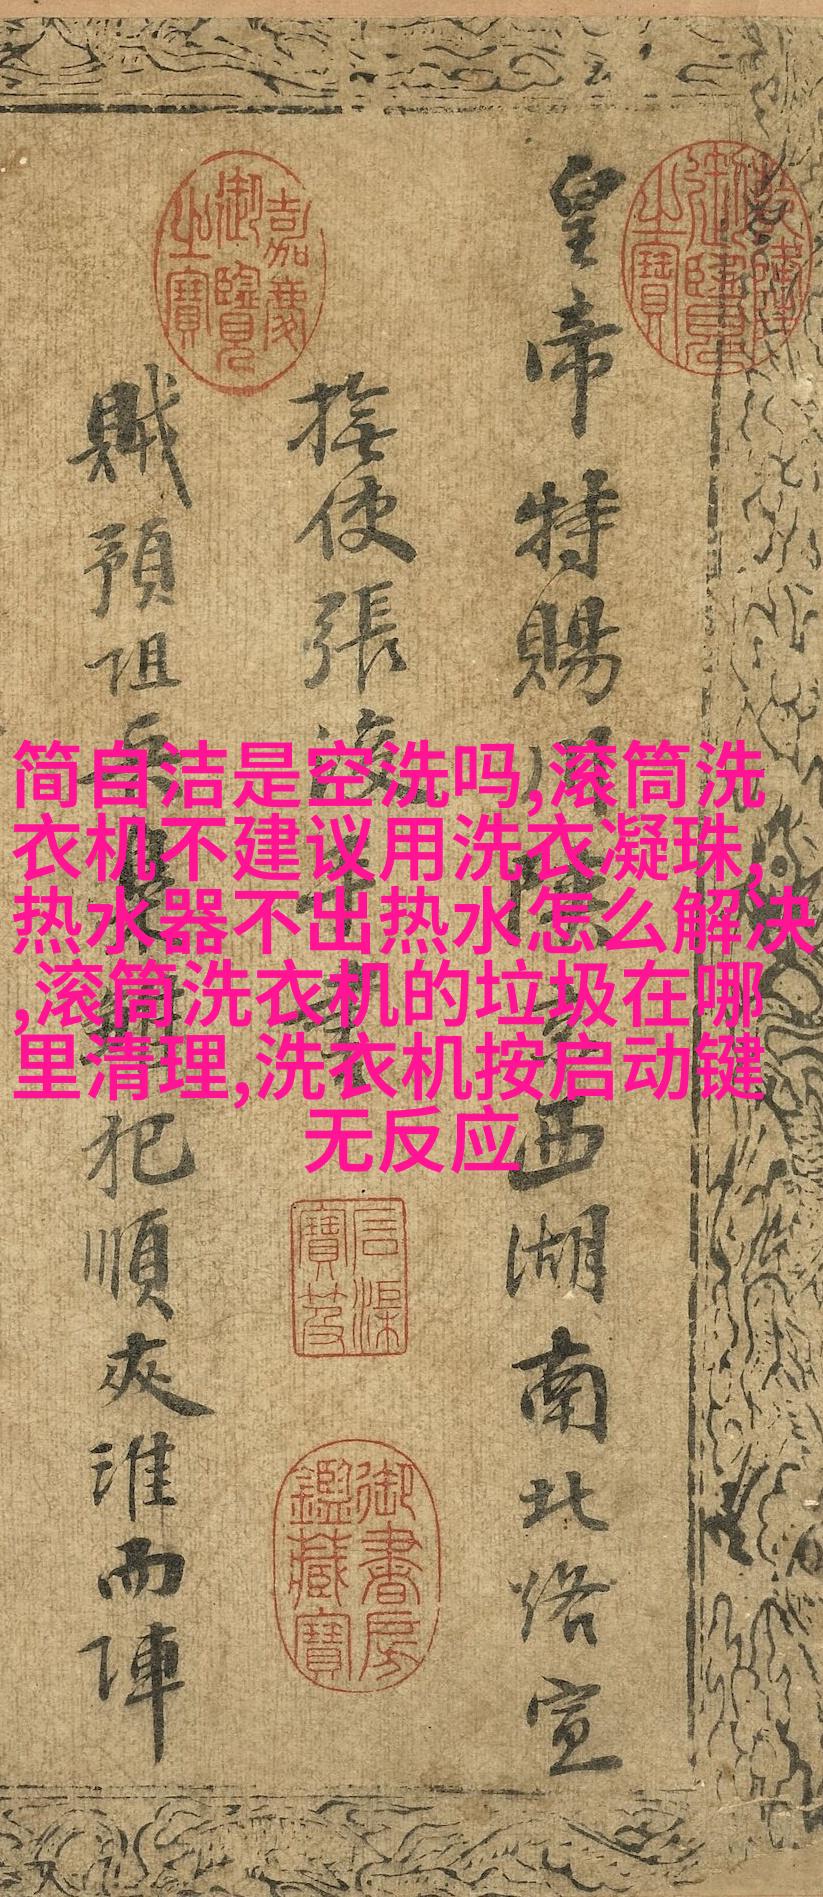 皇帝特賜川陝京西湖南北路宣
撫使張浚手書
賊預阻兵梟獍犯順夾淮而陣
嘉慶御覽之寶
石渠寶笈
御書房鑑藏寶
简自洁是空洗吗,滚筒洗
衣机不建议用洗衣凝珠,
热水器不出热水怎么解决
,滚筒洗衣机的垃圾在哪
里清理,洗衣机按启动键
无反应